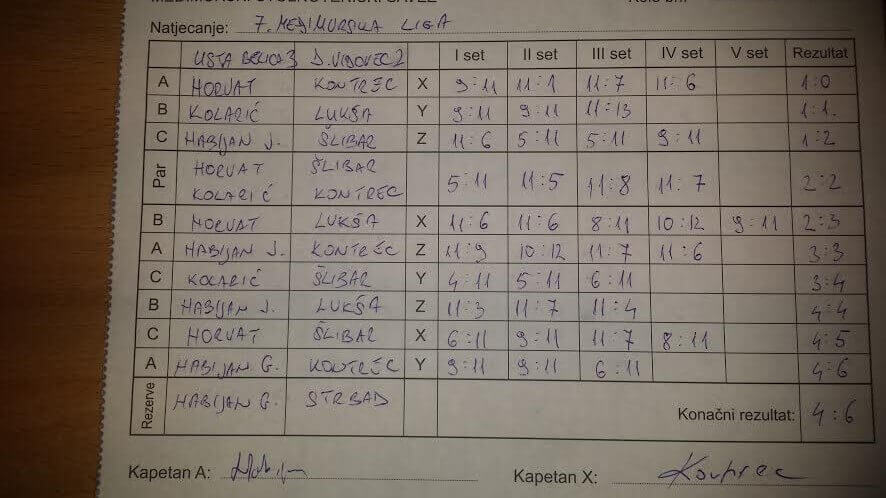 Natjecanje: 7. MEĐIMURSKA LIGA
USTA BELICA 3 D. VIDOVEC 2 I set II set III set IV set V set Rezultat
A HORVAT KONTREC X 9:11 11:1 11:7 11:6 1:0
B KOLARIĆ LUKŠA Y 9:11 9:11 11:13 1:1.
C HABIJAN J. ŠLIBAR Z 11:6 5:11 5:11 9:11 1:2
Par HORVAT ŠLIBAR
KOLARIĆ KONTREC 5:11 11:5 11:8 11:7 2:2
B HORVAT LUKŠA X 11:6 11:6 8:11 10:12 9:11 2:3
A HABIJAN J. KONTREC Z 11:9 10:12 11:7 11:6 3:3
C KOLARIĆ ŠLIBAR Y 4:11 5:11 6:11 3:4
B HABIJAN J. LUKŠA Z 11:3 11:7 11:4 4:4
C HORVAT ŠLIBAR X 6:11 9:11 11:7 8:11 4:5
A HABIJAN G. KONTREC Y 9:11 9:11 6:11 4:6
Rezerve HABIJAN G. STRBAD Konačni rezultat: 4:6
Kapetan A: Kapetan X: Kontrec